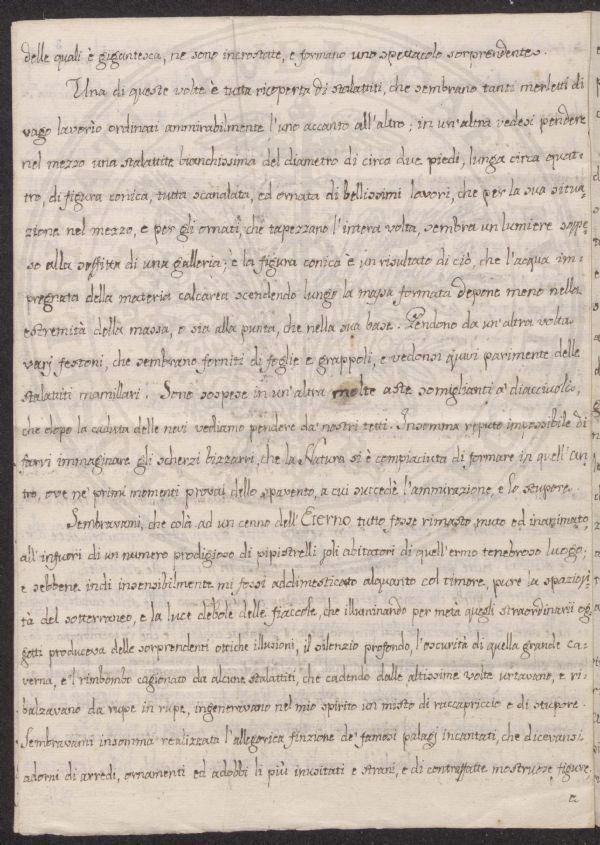 delle quali è gigantesca, ne sono incrostate, e formano uno spettacolo sorprendente.
Una di queste volte è tutta ricoperta di stalattiti, che sembrano tanti merletti di
vago lavorìo ordinati ammirabilmente l'uno accanto all'altro; in un'altra vedesi pendere
nel mezzo una stalattite bianchissima del diametro di circa due piedi, lunga circa quat-
tro, di figura conica, tutta scanalata, ed ornata di bellissimi lavori, che per la sua situa-
zione nel mezzo, e per gli ornati, che tapezzano l'intera volta, sembra un lumiere sospe-
so alla soffitta di una galleria; e la figura conica è un risultato di ciò, che l'acqua im-
pregnata della materia calcarea scendendo lungo la massa formata depone meno nella
estremità della massa, o sia alla punta, che nella sua base. Pendono da un'altra volta
varj festoni, che sembrano forniti di foglie e grappoli, e vedonsi quivi parimente delle
stalattiti mamillari. Sono sospese in un'altra molte aste somiglianti a' diacciuoli,
che dopo la caduta delle nevi vediamo pendere da' nostri tetti. Insomma reputo impossibile di
farvi immaginare gli scherzi bizzarri, che la Natura si è compiaciuta di formare in quell'an-
tro, ove ne' primi momenti provai dello spavento, a cui succedè l'ammirazione, e lo stupore.
Sembravami, che colà ad un cenno dell'Eterno tutto fosse rimasto muto ed inanimato,
all'infuori di un numero prodigioso di pipistrelli soli abitatori di quell'ermo tenebroso luogo;
e sebbene indi insensibilmente mi fossi addimesticato alquanto col timore, pure la spaziosi-
tà del sotterraneo, e la luce debole delle fiaccole, che illuminando per metà quegli straordinarii og-
getti produceva delle sorprendenti ottiche illusioni, il silenzio profondo, l'oscurità di quella grande ca-
verna, e'l rimbombo cagionato da alcune stalattiti, che cadendo dalle altissime volte urtavano, e ri-
balzavano da rupe in rupe, ingeneravano nel mio spirito un misto di raccapriccio e di stupore.
Sembravami insomma realizzata l'allegorica finzione de' famosi palagj incantati, che dicevansi
adorni di arredi, ornamenti ed addobbi li più inusitati e strani, e di contraffatte mostruose figure,
e